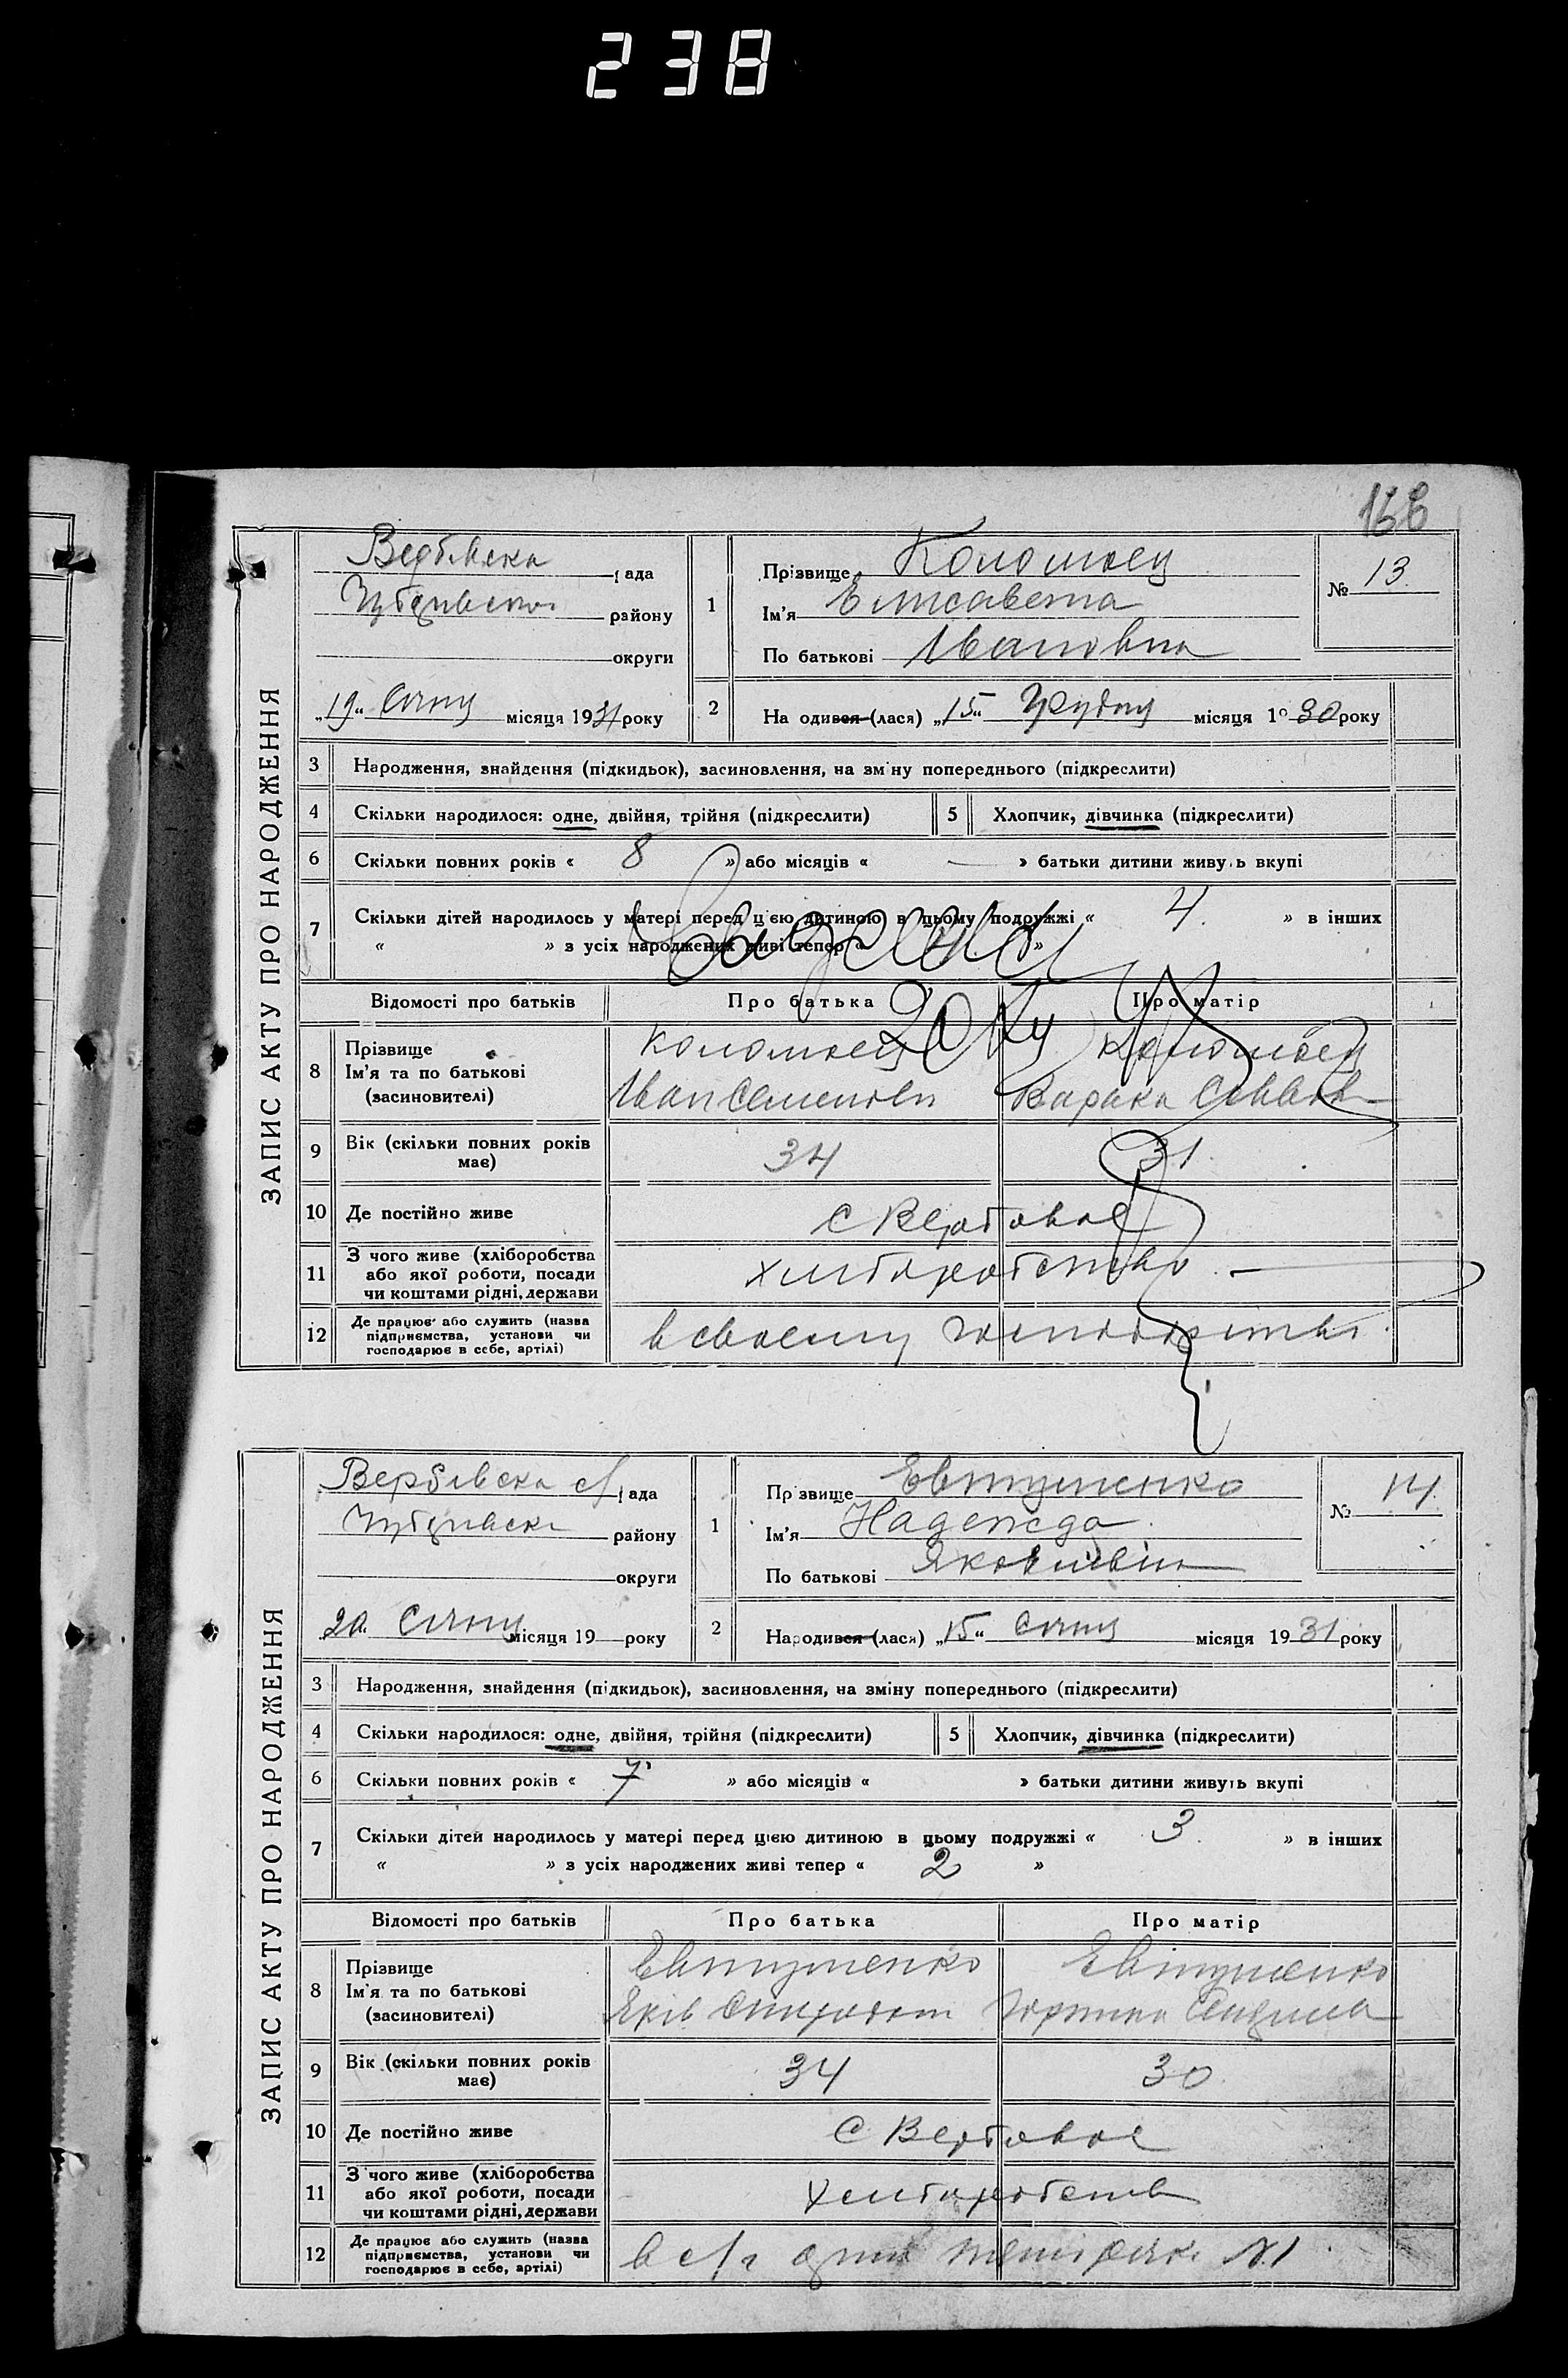 238
166
ЗАПИС АКТУ ПРО НАРОДЖЕННЯ
Вербівска рада
району
округи
"19" Січня місяця 1931 року
1
Прізвище Коломоец
Ім'я Елисавета
По батькові Івановна
№ 13
2
На одився (лася) "15" Грудня місяця 1930 року
3 Народження, знайдення (підкидьок), засиновлення, на зміну попереднього (підкреслити)
4 Скільки народилося: одне, двійня, трійня (підкреслити)
5 Хлопчик, дівчинка (підкреслити)
6 Скільки повних років « 8 » або місяців « — » батьки дитини живуть вкупі
7 Скільки дітей народилось у матері перед цією дитиною в цьому подружжі « 4. » в інших
« » з усіх народжених живі тепер « »
Відомості про батьків Про батька Про матір
8 Прізвище
Ім'я та по батькові
(засиновителі)
Коломоец Коломоец
Іван Семенов
9 Вік (скільки повних років має) 34 31
10 Де постійно живе с Вербовое
11 З чого живе (хліборобства або якої роботи, посади чи коштами рідні, держави хліборобство
12 Де працює або служить (назва підприємства, установи чи господарює в себе, артілі) в своему господарстві
ЗАПИС АКТУ ПРО НАРОДЖЕННЯ
Вербівска с/рада
району
округи
"20" Січня місяця 19 року
1
Прізвище Евтушенко
Ім'я Надежда
По батькові Яковлівна
№ 14
2
Народився (лася) "15" Січня місяця 1931 року
3 Народження, знайдення (підкидьок), засиновлення, на зміну попереднього (підкреслити)
4 Скільки народилося: одне, двійня, трійня (підкреслити)
5 Хлопчик, дівчинка (підкреслити)
6 Скільки повних років « 7 » або місяців « » батьки дитини живуть вкупі
7 Скільки дітей народилось у матері перед цією дитиною в цьому подружжі « 3 » в інших
« » з усіх народжених живі тепер « 2 »
Відомості про батьків Про батька Про матір
8 Прізвище
Ім'я та по батькові
(засиновителі)
Евтушенко Евтушенко
Яків
9 Вік (скільки повних років має) 34 30
10 Де постійно живе С Вербовое
11 З чого живе (хліборобства або якої роботи, посади чи коштами рідні, держави Хліборобств
12 Де працює або служить (назва підприємства, установи чи господарює в себе, артілі) в с/г